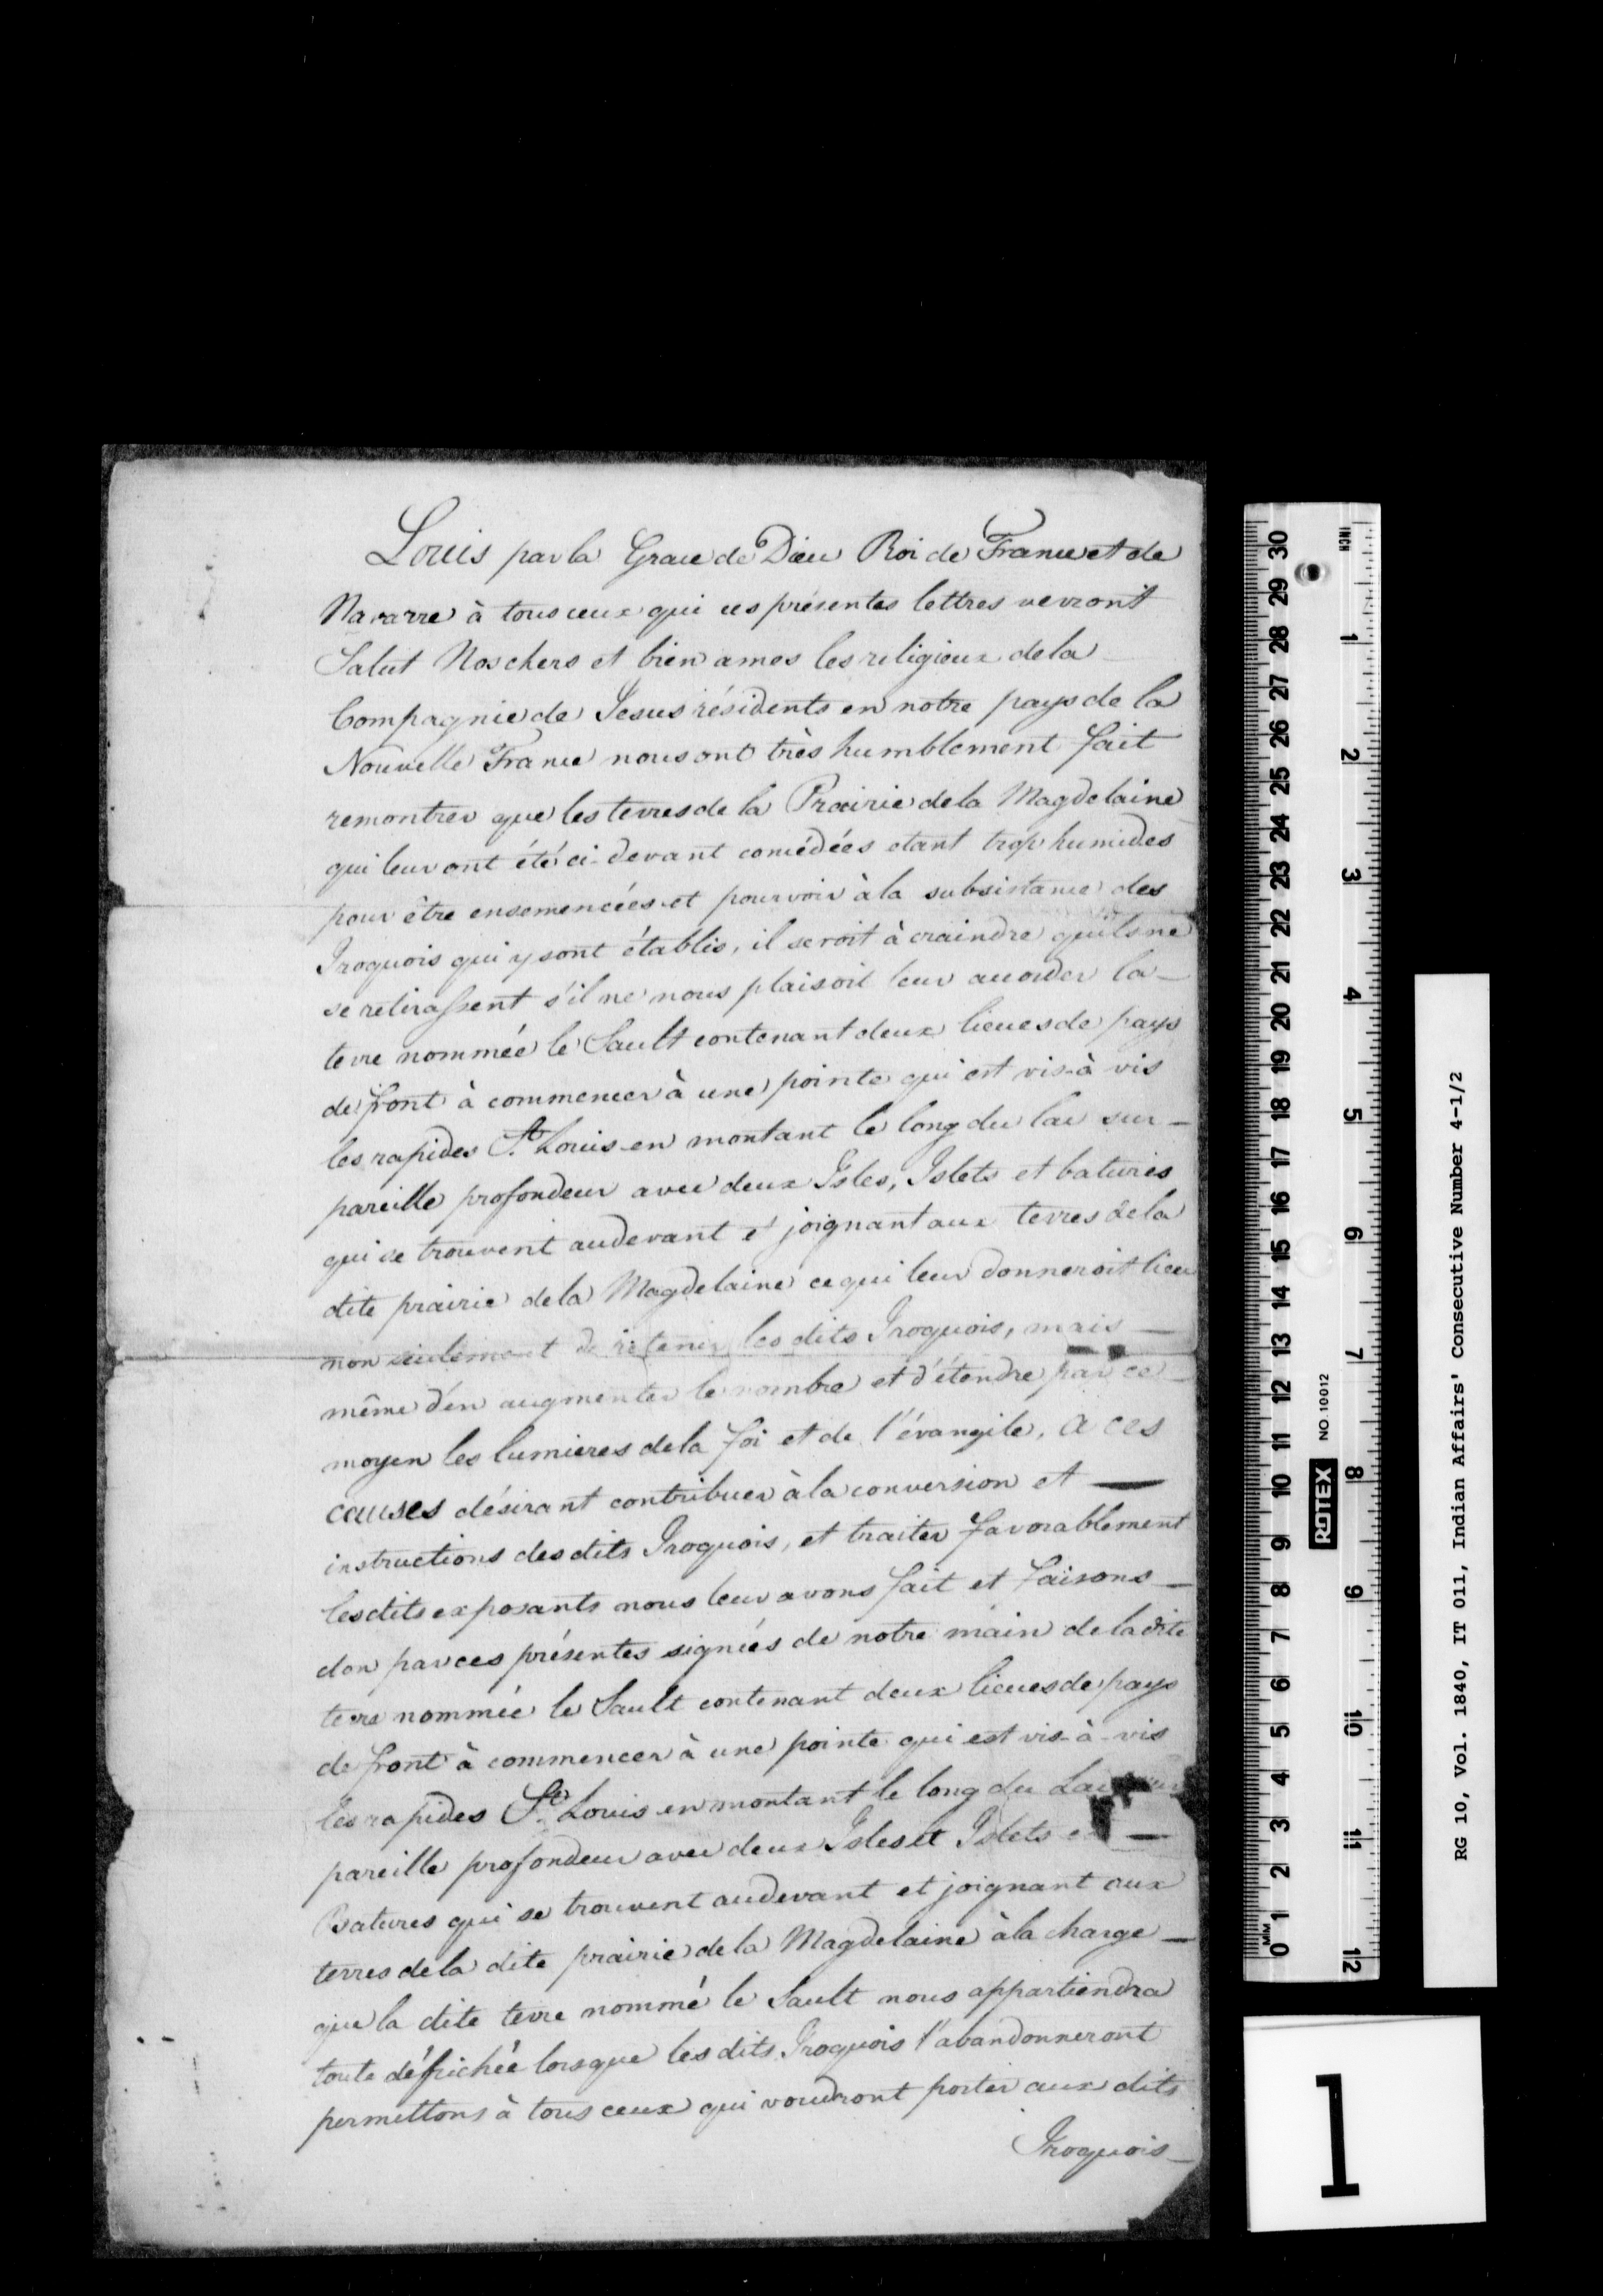 Louis par la Grace de Dieu Roi de France et de
Navarre à tous ceux qui ces présentes lettres verront
Salut Nos chers et bien amés les religieux de la
Compagnie de Jesus résidents en notre pays de la
Nouvelle France nous ont très humblement fait
remontrer que les terres de la Prairie de la Magdelaine
qui leur ont été ci-devant concédées etant trop humides
pour être ensemencées et pourvoir à la subsistance des
Iroquois qui y sont établis, il seroit à craindre qu'ils ne
se retirassent s'il ne nous plaisoit leur accorder la
terre nommée le Sault contenant deux lieues de pays
de front à commencer à une pointe qui est vis-à vis
les rapides St. Louis en montant le long du lac sur
pareille profondeur avec deux Isles, Islets et batures
qui se trouvent audevant et joignant aux terres de la
dite prairie de la Magdelaine ce qui leur donneroit lieu
non seulement de retenir les dits Iroquois, mais
même d'en augmenter le nombre et d'étendre par ce
moyen les lumieres de la foi et de l'évangile, a ces
causes désirant contribuer à la conversion et
instructions des dits Iroquois, et traiter favorablement
les dits exposants nous leur avons fait et faisons
don par ces présentes signées de notre main de la dite
terre nommée le Sault contenant deux lieues de pays
de front à commencer à une pointe qui est vis-à-vis
les rapides St. Louis en montant le long du Lac
pareille profondeur avec deux Isles et Islets et
Batures qui se trouvent audevant et joignant aux
terres de la dite prairie de la Magdelaine à la charge
que la dite terre nommé le Sault nous appartiendra
toute défrichée lorsque les dits Iroquois l'abandonneront
permettons à tous ceux qui voudront porter aux dits
Iroquois
INCH
1 2 3 4 5 6 7 8 9 10 11 12
30 29 28 27 26 25 24 23 22 21 20 19 18 17 16 15 14 13 12 11 10 9 8 7 6 5 4 3 2 1 0
MM
ROTEX NO 10012
RG 10, Vol. 1840, IT 011, Indian Affairs' Consecutive Number 4-1/2
1